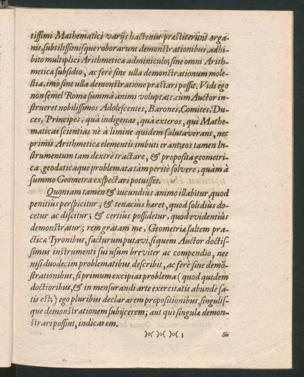 tissimi Mathematici varijs hactenus practiterunt orga-
nis, subtilissimisque roborarunt demonstrationibus, adhi-
bito multiplici Arithmetica adminiculo, sine omni Arith-
metica subsidio, ac ferè sine ulla demonstrationum mole-
stia, imò sine ulla demonstratione practari posse. Vidi ego
non semel Romæ summâ animi voluptate, cùm Auctor in-
strueret nobilissimos Adolescentes, Barones, Comites, Du-
ces, Principes, quà indigenas, quà exteros, qui Mathe-
maticas scientias nè à limine quidem salutaverant, nec
primis Arithmetica elementis imbuti erant, eos tamen In-
strumentum tam dextrè tractare, & proposita geometri-
ca, geodaticaque problemata tàm peritè solvere, quàm à
summo Geometra exspectari potuisset.
Quoniam tamen & iucundius animo illabitur, quod
penitius perspicitur; & tenacius haret, quod solidius do-
cetur ac discitur; & certius possidetur, quod evidentius
demonstratur; rem gratam me, Geometria saltem pra-
ctica Tyronibus, facturum putavi, si quem Auctor doctis-
simus instrumenti sui usum breviter ac compendio, nec
nisi duodecim problematibus describit, ac ferè sine demõ-
strationibus, si primum excipias problema (quod quidem
doctioribus, & in mensurandi arte exercitatis abunde sa-
tis est;) ego pluribus declararem propositionibus, singulis-
que demonstrationem subijcerem; aut qui singula demon-
strari possint, indicarem.
)( )( )( 3 Sic